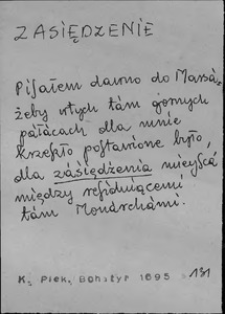 ZASIĘDZENIE
Pisałem dawno do Marsa,
żeby w tych tám gornych
páłácách dla mnie
krzesło postawione było,
dla záśiędzenia mieyscá
między residuiącemi
tám Monárchámi.
K. Piek, Bohatyr 1695 s 131